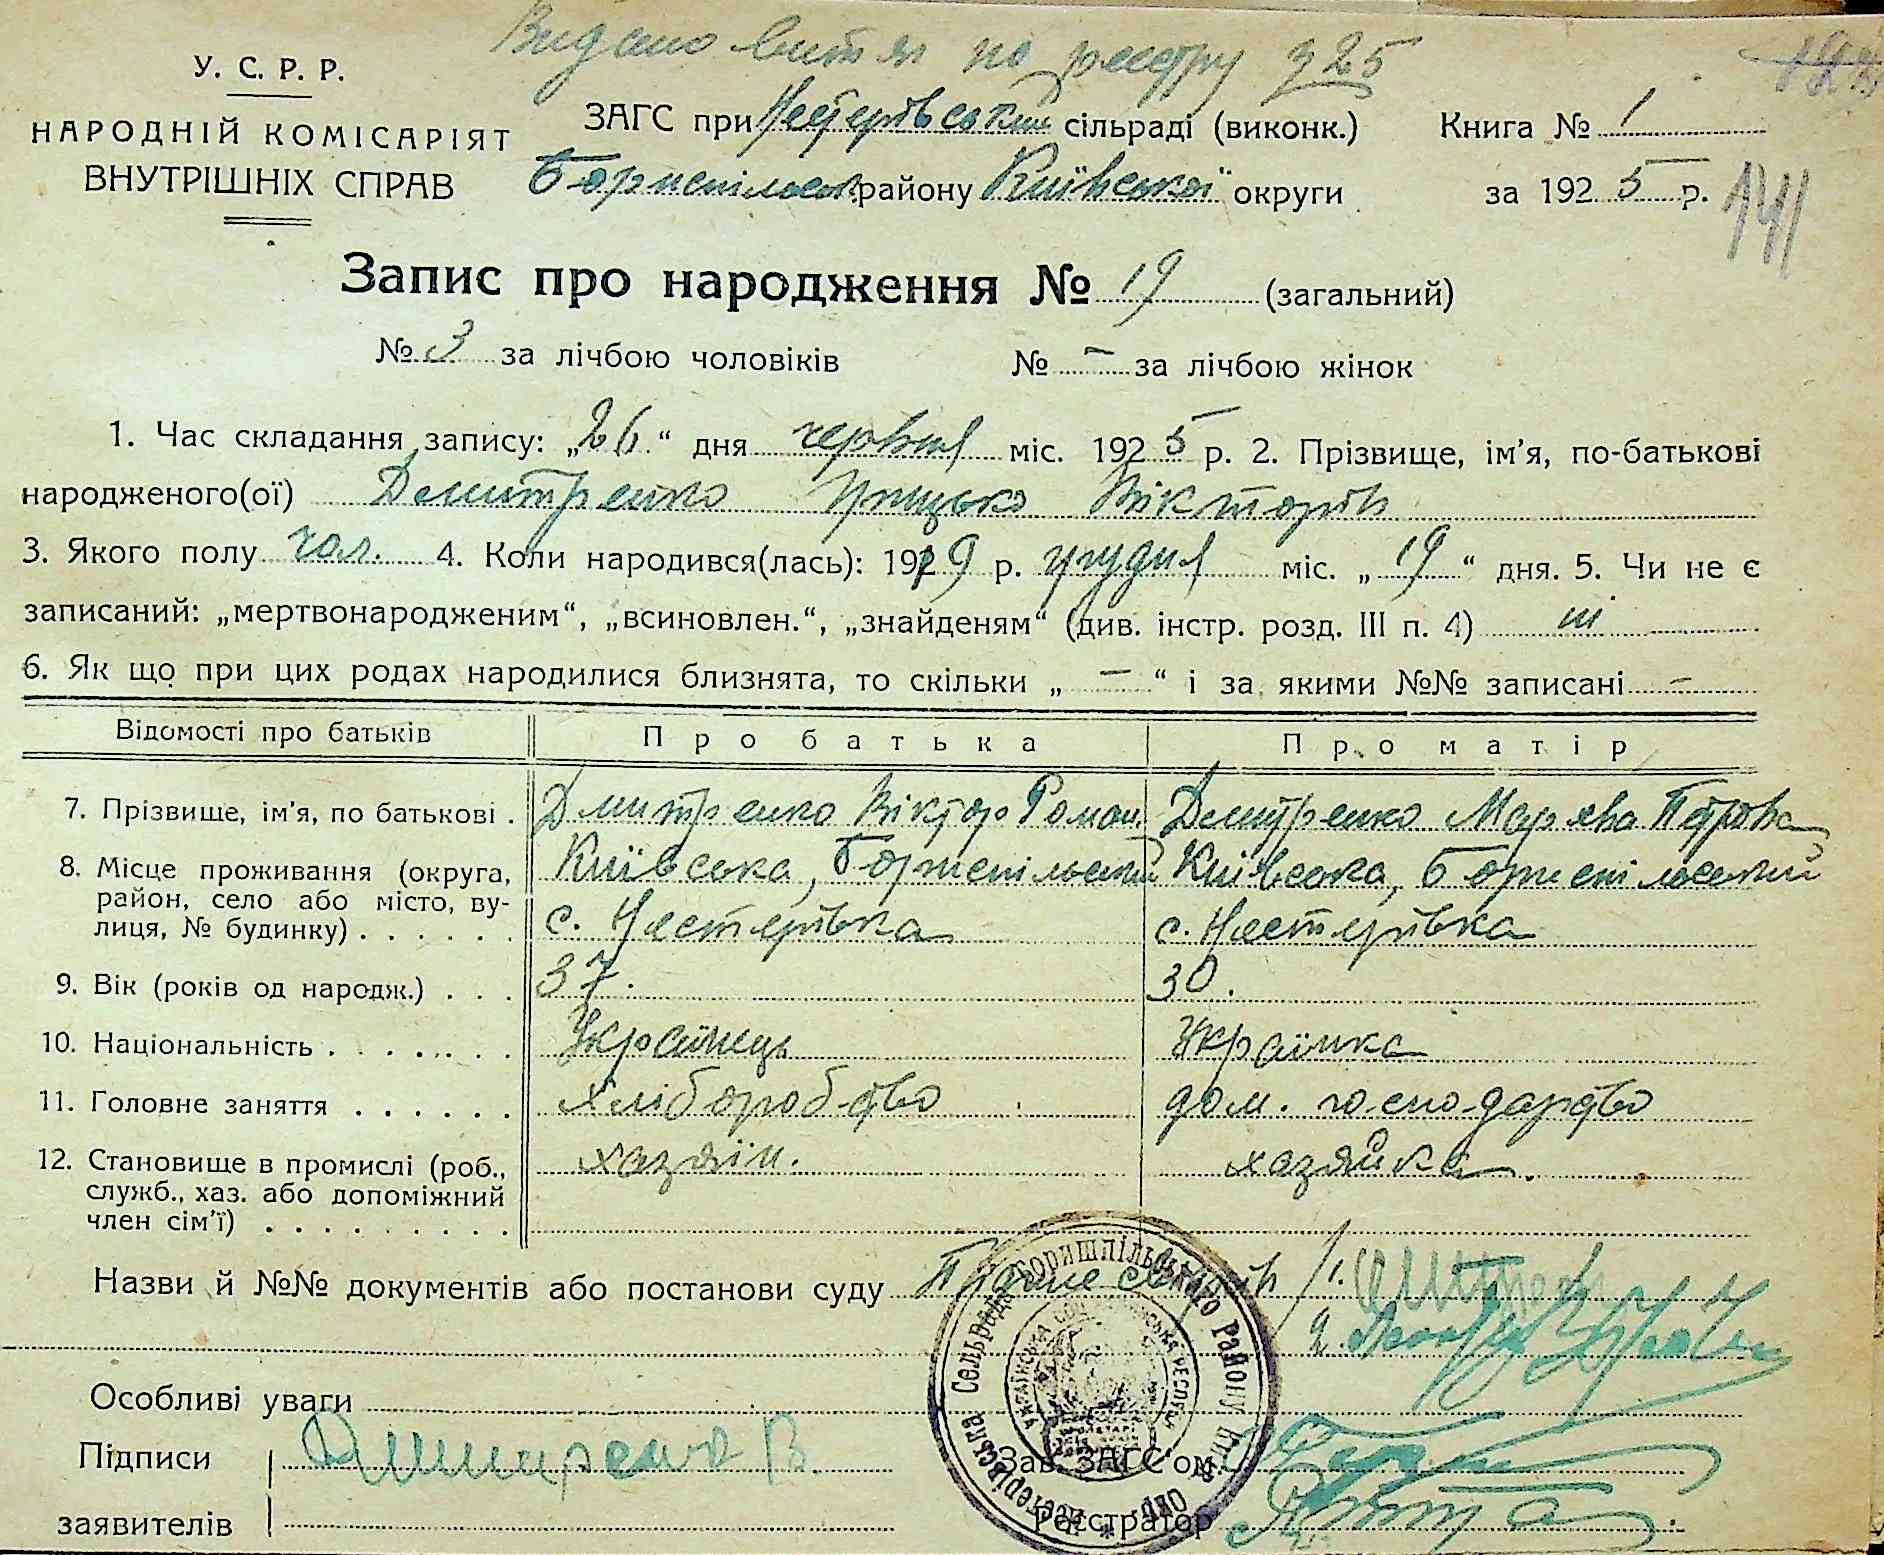 Видано витяг по реєстру з 25
У. С. Р. Р.
НАРОДНІЙ КОМІСАРІЯТ
ВНУТРІШНІХ СПРАВ
ЗАГС при Нестерівський сільраді (виконк.)
Книга № 1
Бориспільськ. району Київської округи
за 1925 р.
141
Запис про народження № 19 (загальний)
№ 3 за лічбою чоловіків № – за лічбою жінок
1. Час складання запису: „26.“ дня червня міс. 1925 р. 2. Прізвище, ім’я, по-батькові
народженого(ої) Дмитренко Грицько Вікторів
3. Якого полу чол. 4. Коли народився(лась): 1919 р. грудня міс. „19“ дня. 5. Чи не є
записаний: „мертвонародженим“, „всиновлен.“, „знайденям“ (див. інстр. розд. III п. 4) ні
6. Як що при цих родах народилися близнята, то скільки „ – “ і за якими №№ записані –
Відомості про батьків Про батька Про матір
7. Прізвище, ім’я, по батькові . Дмитренко Віктор Роман. Дмитренко Мар'яна Петрова
8. Місце проживання (округа, Київська, Бориспільський Київська, Бориспільський
район, село або місто, ву-
лиця, № будинку) . . . . . . с. Нестерівка с. Нестерівка
9. Вік (років од народж.) . . . 37. 30.
10. Національність . . . . . . . Українець Українка
11. Головне заняття . . . . . . хліборобство дом. господарство
12. Становище в промислі (роб., хазяїн. хазяйка
служб., хаз. або допоміжний
член сім’ї) . . . . . . . . .
Назви й №№ документів або постанови суду
1.
2.
Особливі уваги
Підписи
заявителів
Дмитренко В.
Зав. ЗАГС’ом
Реєстратор
Нестерівська Сельрада Боришпільського Району Київ. Окр. *